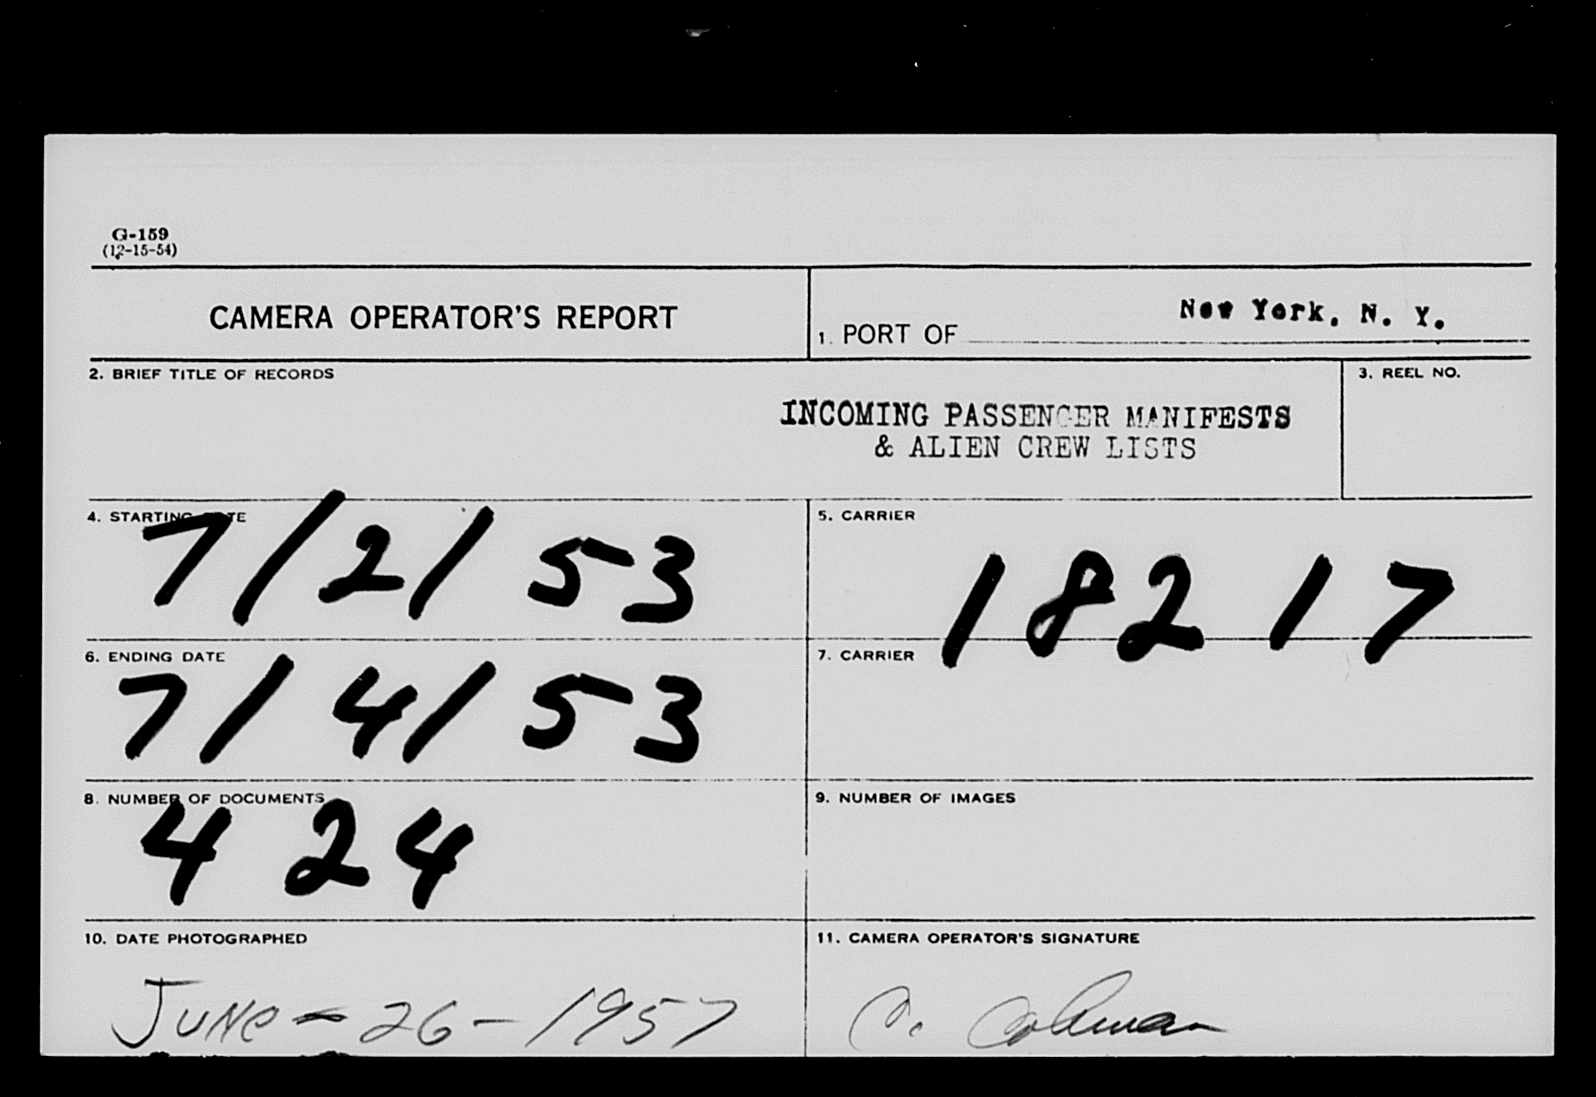 G-159
(12-15-54)
CAMERA OPERATOR'S REPORT
1. PORT OF New York, N. Y.
2. BRIEF TITLE OF RECORDS
INCOMING PASSENGER MANIFESTS
& ALIEN CREW LISTS
3. REEL NO.
4. STARTING DATE
7/2/53
5. CARRIER
18217
6. ENDING DATE
7/4/53
7. CARRIER
8. NUMBER OF DOCUMENTS
424
9. NUMBER OF IMAGES
10. DATE PHOTOGRAPHED
JUNE - 26 - 1957
11. CAMERA OPERATOR'S SIGNATURE